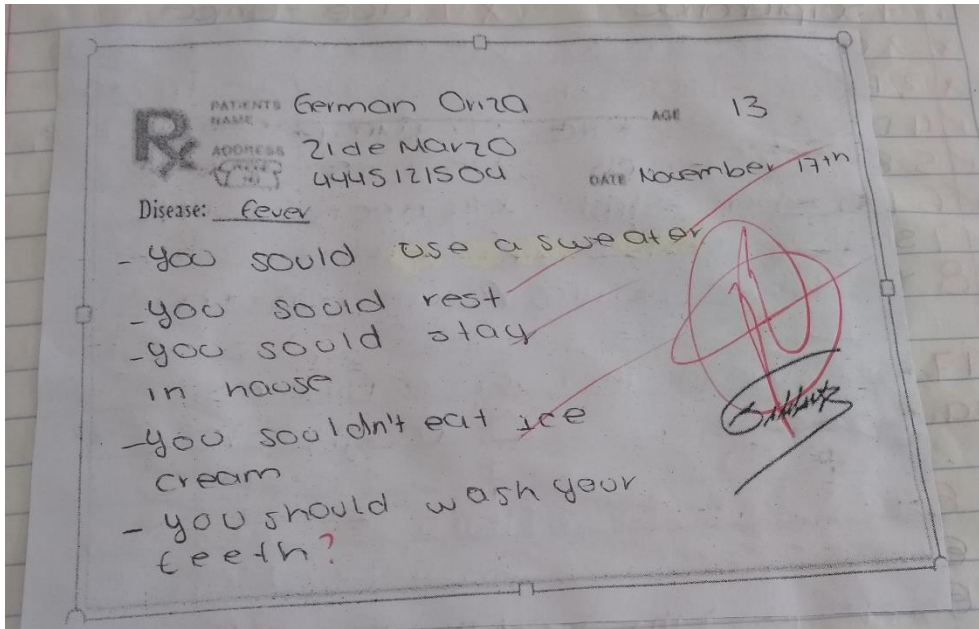 Rx
PATIENTS NAME German Oriza AGE 13
ADDRESS 21 de Marzo
4445121504 DATE November 17th
Disease: fever
- you sould use a sweater
- you sould rest
- you sould stay
in hause
- you souldn't eat ice
cream
- you should wash your
teeth?